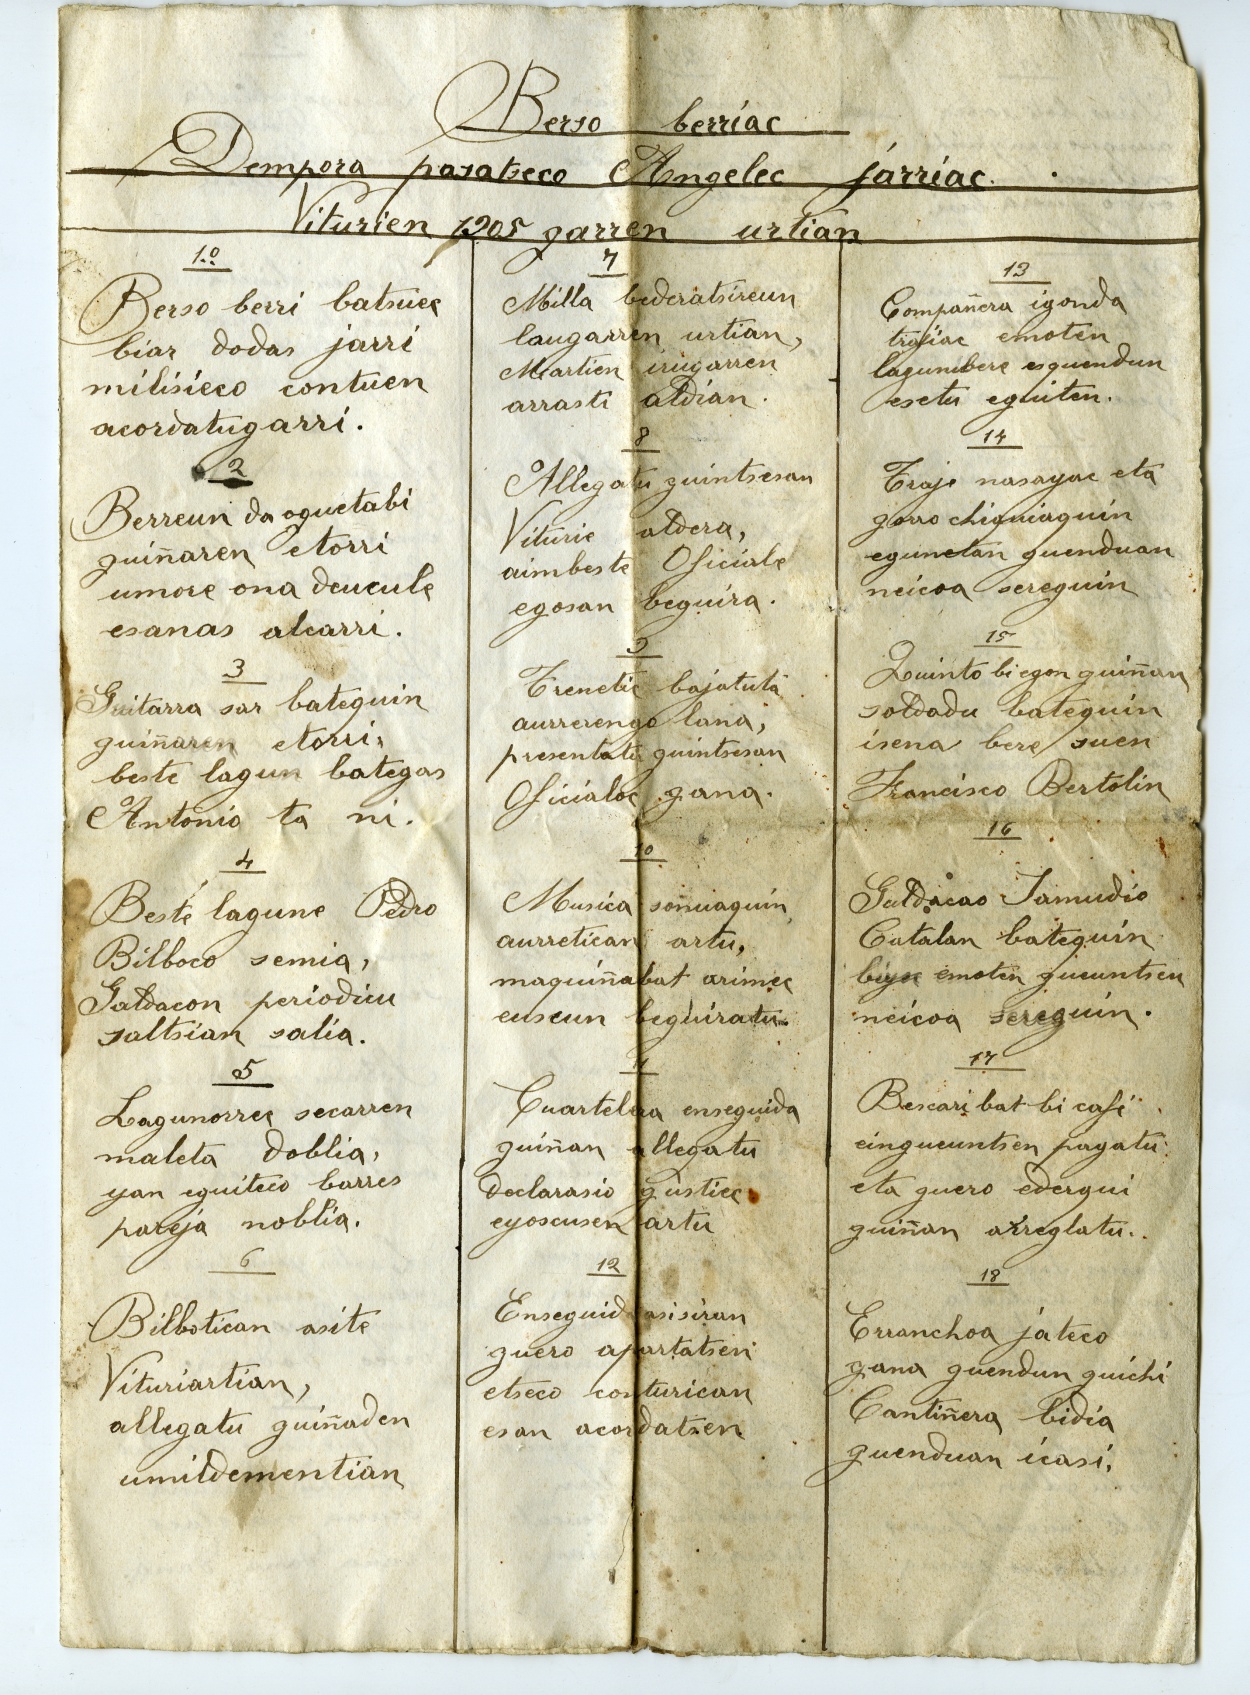 Berso berriac
Dempora pasatseco Angelec jarriac.
Viturien 1905 garren urtian
1.o
Berso berri batsuec
biar dodas jarri
milisieco contuen
acordatugarri.
2
Berreun da oguetabi
guiñaren etorri
umore ona deucule
esanas alcarri.
3
Guitarra sar bateguin
guiñaren etorri,
beste lagun bategas
Antonio ta ni.
4
Beste lagune Pedro
Bilboco semia,
Galdacon periodicu
saltsian salia.
5
Lagunorrec secarren
maleta doblia,
yan eguiteco barres
pareja noblia.
6
Bilbotican asite
Vituriartian,
allegatu guiñaden
umildementian
7
Milla bederatsireun
laugarren urtian,
Martien irugarren
arrasti aldian.
8
Allegatu guintsesan
Viturie aldera,
aimbeste Oficiale
egosan beguira.
9
Trenetic bajatuta
aurrerengo lana,
presentatu guintsesan
Oficialoc gana.
10
Musica sonuaguin
aurretican artu,
maquiñabat arimec
euscun beguiratu.
11
Cuartelera enseguida
guiñan allegatu
declarasio gustiec
eyoscusen artu
12
Enseguid asisiran
guero apartatsen
etseco conturican
esan acordatsen
13
Compañera igonda
trajiac emoten
lagunibere esguendun
esetu eguiten.
14
Traje nasayac eta
gorro chiquiaguin
egunetan guenduan
neicoa sereguin
15
Quinto bi egon guiñan
soldadu bateguin
isena bere suen
Francisco Bertolin
16
Galdacao Jamudio
Catalan bateguin
biyac emoten gueuntsen
neicoa sereguin.
17
Bescari bat bi café
eingueuntsen pagatu
eta guero ederqui
guiñan arreglatu..
18
Erranchoa jateco
gana guendun guichi
Cantiñera bidia
guenduan icasi,